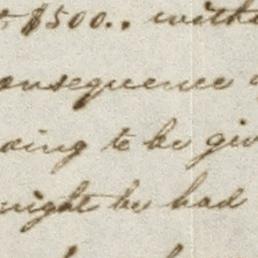 $500.. with
onsequence
oing to be giv
might be had